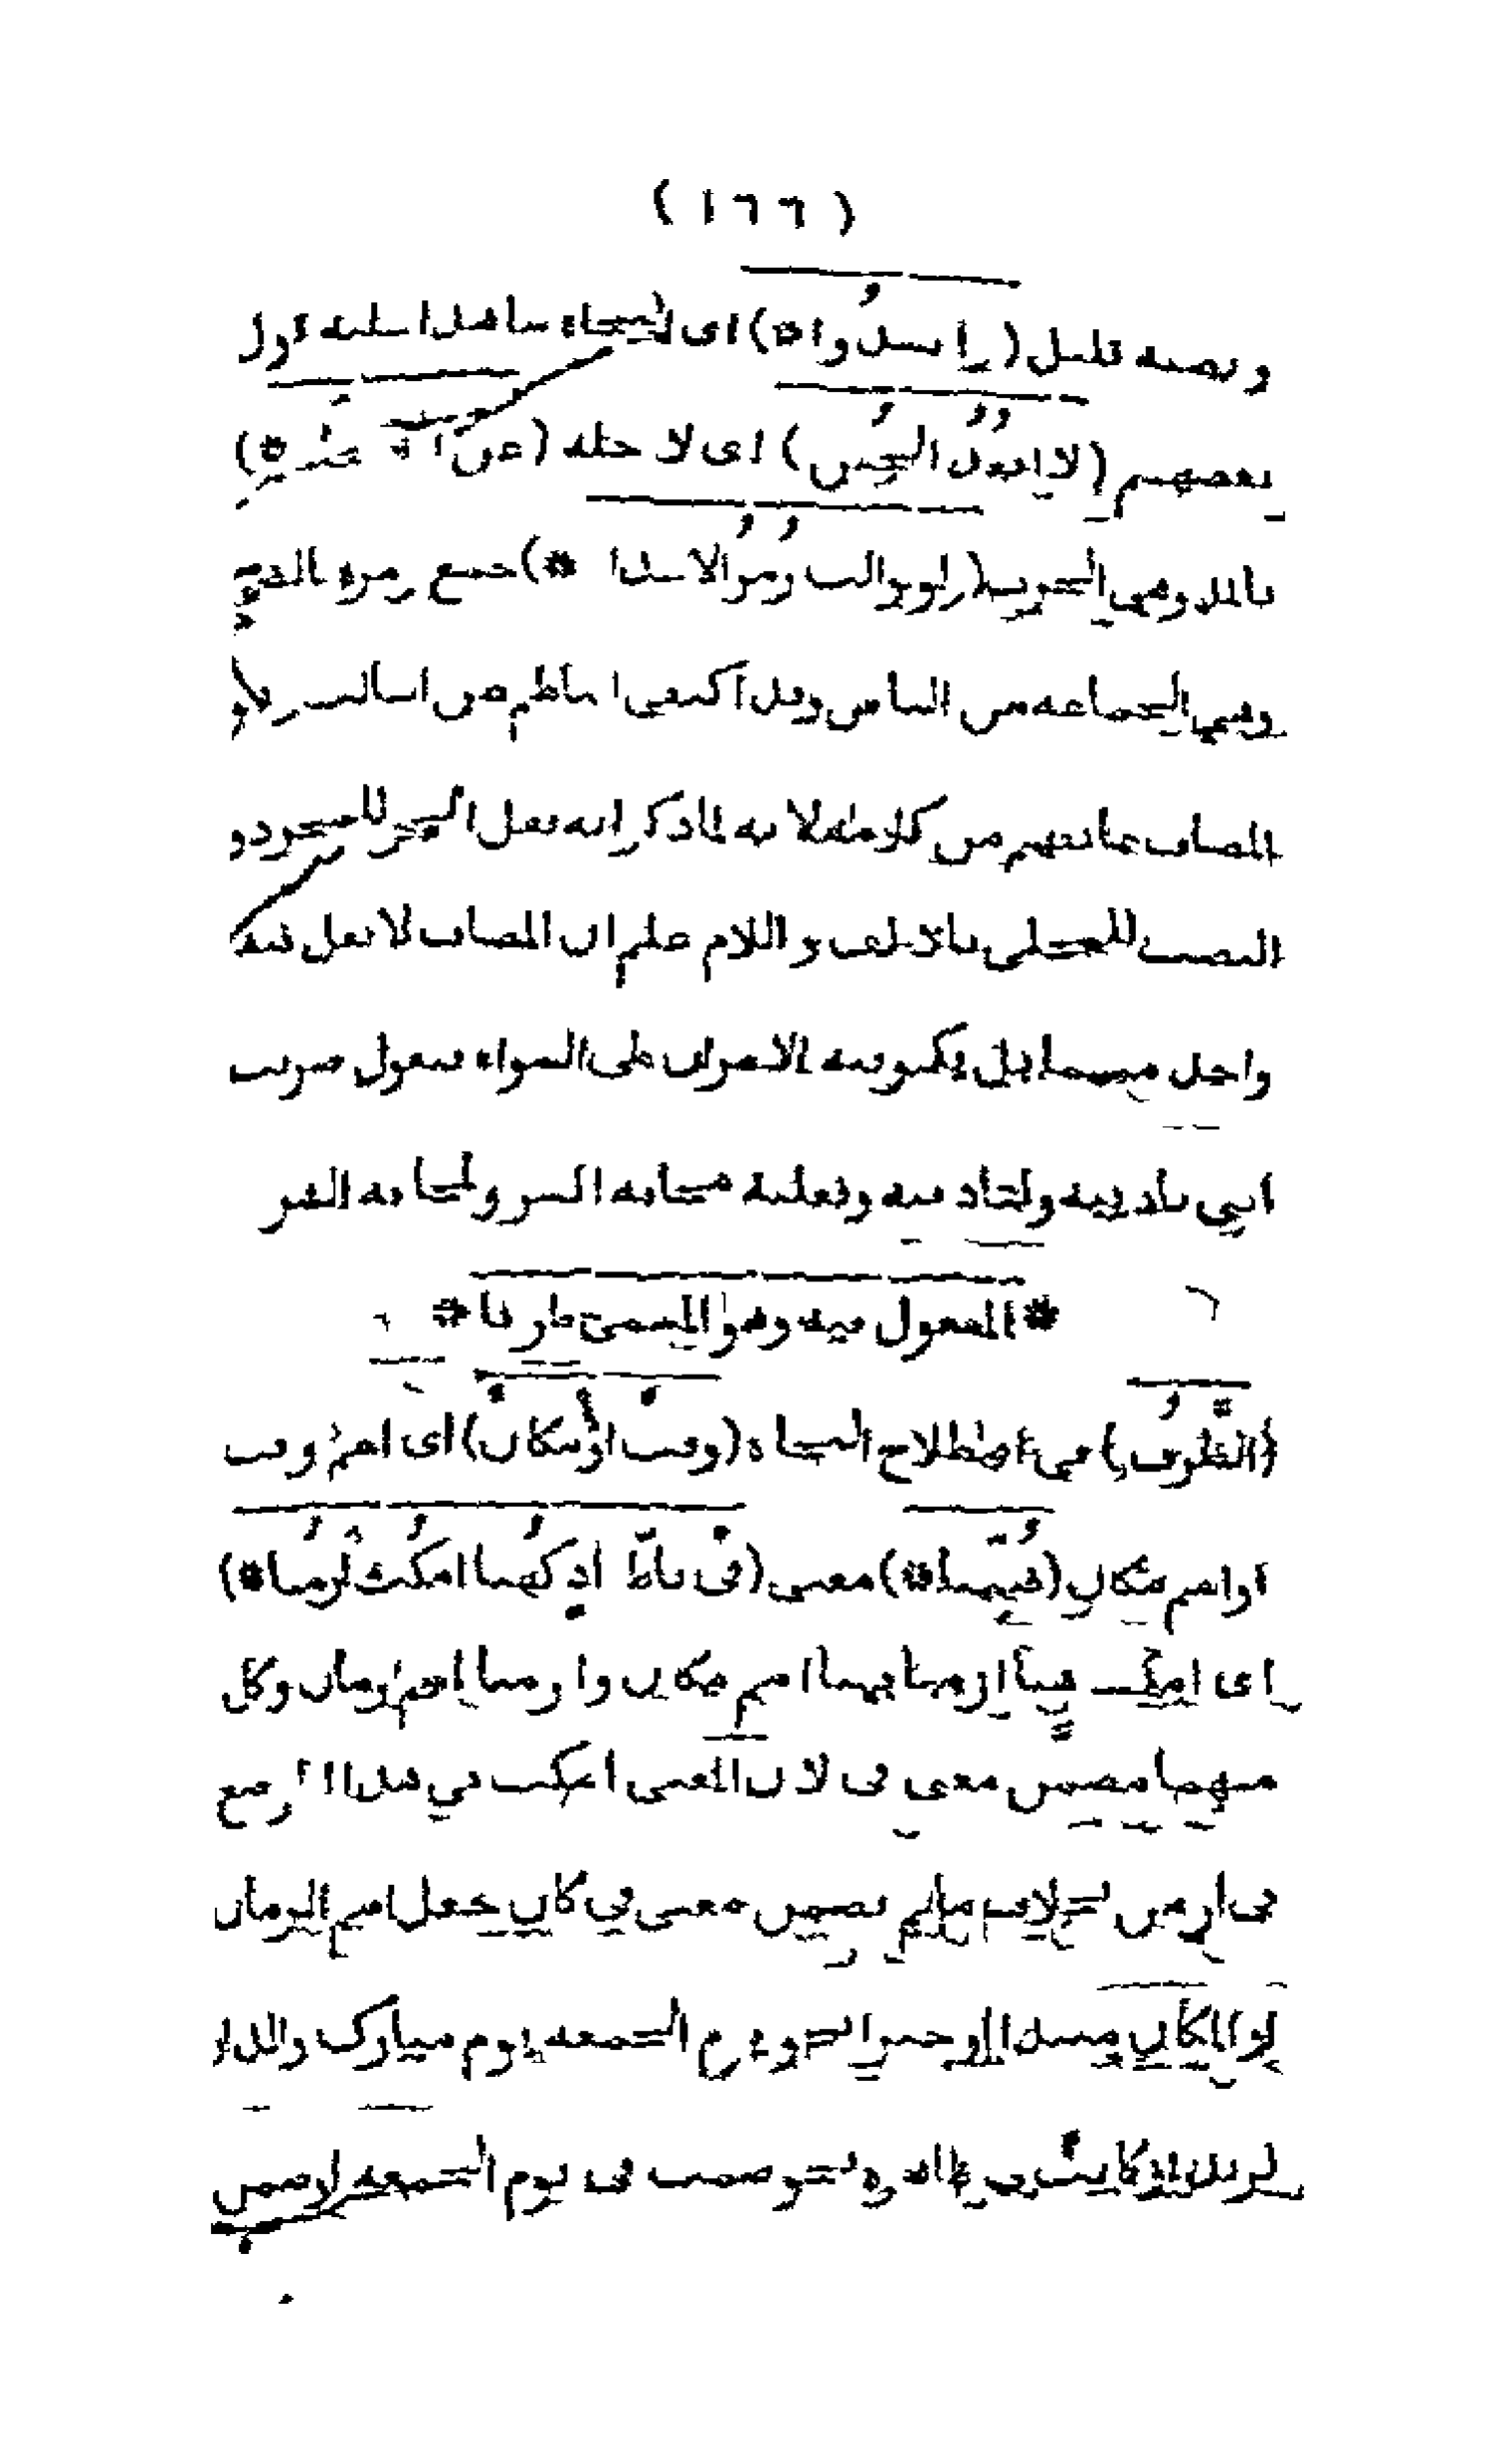 (١٦٦)
ونصبه قليل (وانشدوا*) اى النحاة شاهدا لمسئلة قول
بعضهم (لا اقعد الجبن) اى لاجله (عن الهيجاء*)
بالمد وهى الحرب (ولو توالت زمر الاعداء*) جمع زمرة بالضم
وهى الجماعة من الناس وقد اكتفى الناظم عن
المضاف بما يفهم من كلامه لانه لما ذكر انه يقل الجر للمجرد و
النصب للمحلى بالالف واللام علم ان المضاف لا يقل فيه
واحد منهما بل يكون فيه الامران على السواء فتقول ضربت
ابنى تأديبه ولتأديبه وفعلته مخافة الشر ولمخافة الشر
*المفعول فيه وهو المسمى ظرفا*
(الظرف) فى اصطلاح النحاة (وقت او مكان) اى اسم وقت
او اسم مكان (ضمنا*) معنى (فى باطراد كهنا امكث ازمنا*)
اى امكث هنا ازمنا فهنا اسم مكان وازمنا اسم زمان وكل
منهما مضمن معنى فى لان المعنى امكث فى هذا الموضع
فى ازمن بخلاف ما لم يضمن معنى فى كان جعل اسم الزمان
او المكان مبتدا او خبرا نحو يوم الجمعة يوم مبارك والدار
لزيد او كانت فى ظاهرة نحو صمت فى يوم الجمعة او ضمن